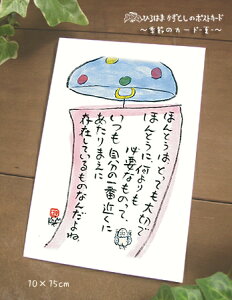 ひろはまかずとしのポストカード
～季節のカード・夏～
ほんとうは、とっても大切で
ほんとうに、何よりも
必要なもので、
いつも自分の一番近くに
あたりまえに
存在しているものなんだよね。
10×15cm